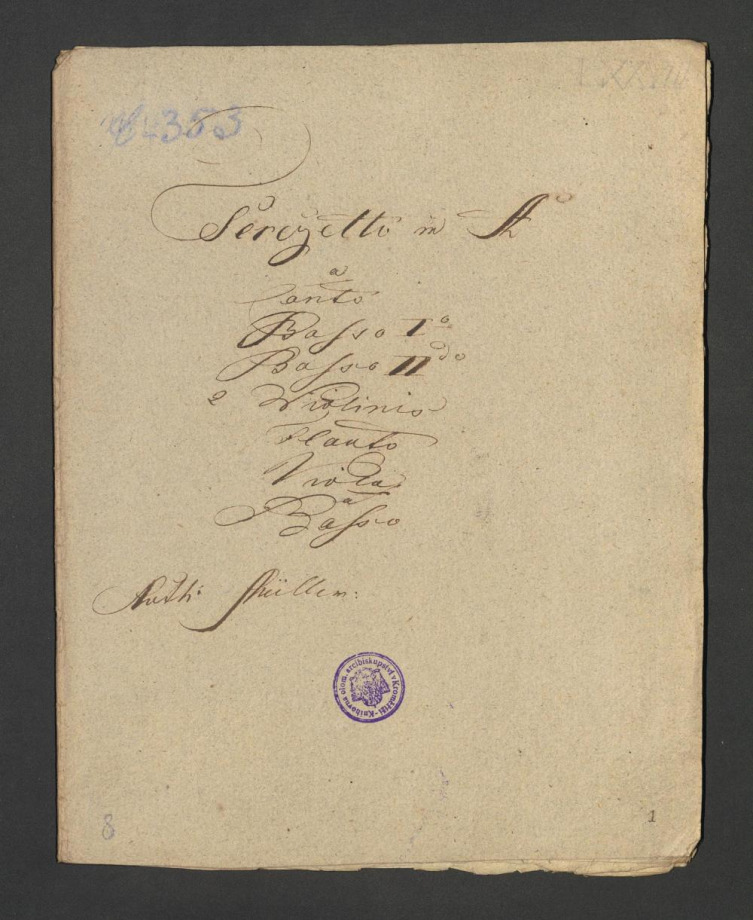 A 4353
Tercetto in A
a
Canto
Basso I^o
Basso II^do
2 Violinis
Flauto
Viola
a
Basso
Auth: Müller:
Knihovna olom. arcibiskupství v Kroměříži
8
1